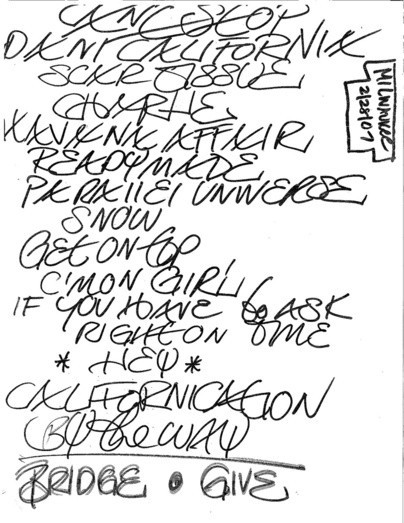 CANT STOP
DANI CALIFORNIA
SCAR TISSUE
CHARLIE
HAVANA AFFAIR
READYMADE
PARALLEL UNIVERSE
SNOW
GET ON TOP
C'MON GIRL
IF YOU HAVE to ASK
RIGHT ON TIME
* HEY *
CALIFORNICATION
BY the WAY
BRIDGE • GIVE
MILWAUKEE
2/28/07